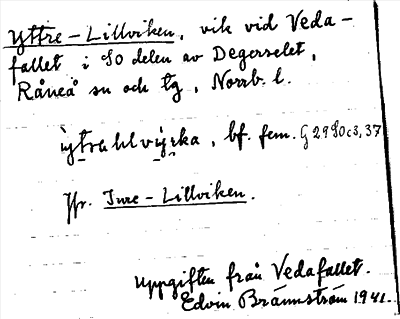 Yttre-Lillviken, vik vid Veda-
fallet i SO delen av Degerselet,
Råneå sn och tg, Norrb. l.
bf. fem. G 2980c3,37
Jfr. Inre-Lillviken.
Uppgiften från Vedafallet.
Edvin Brännström 1941.